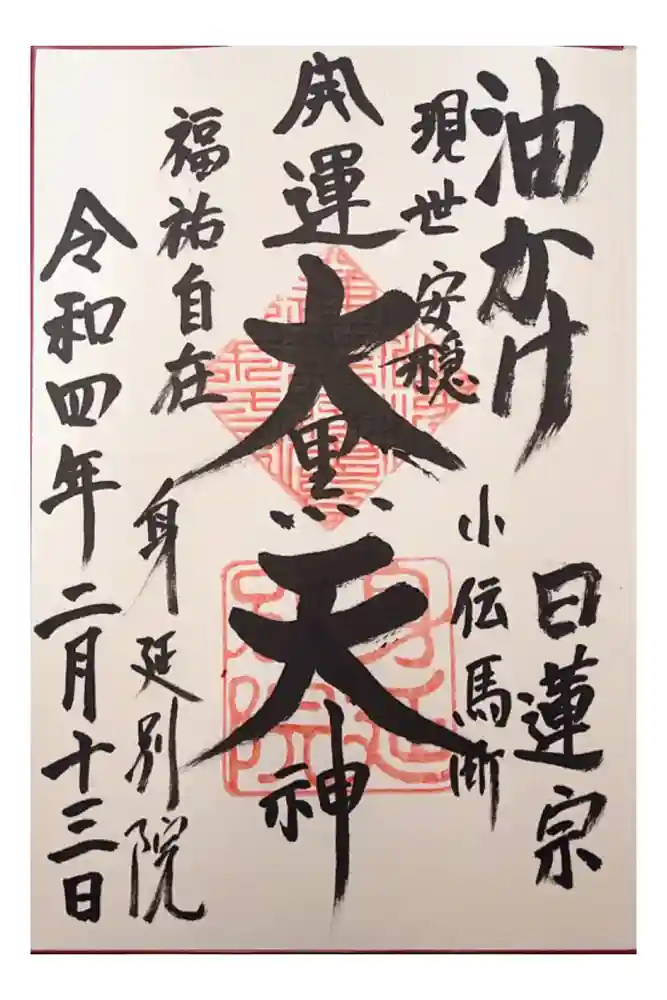 油かけ
日蓮宗
現世安穏
小伝馬町
開運
大黒天神
福祐自在
身延別院
令和四年二月十三日